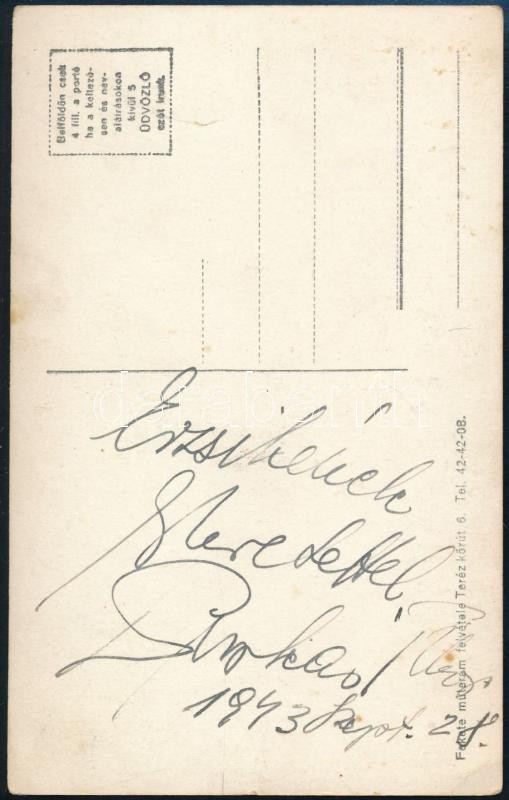 Belföldön csak
4 fill. a portó
ha a keltezé-
sen és név-
aláírásokon
kívül 5
ÜDVÖZLŐ
szót írunk.
Erzsikének
Szeretettel
1943 Szept. 28.
Fekete műterem felvétele Teréz körút 6. Tel. 42-42-08.
darabanth